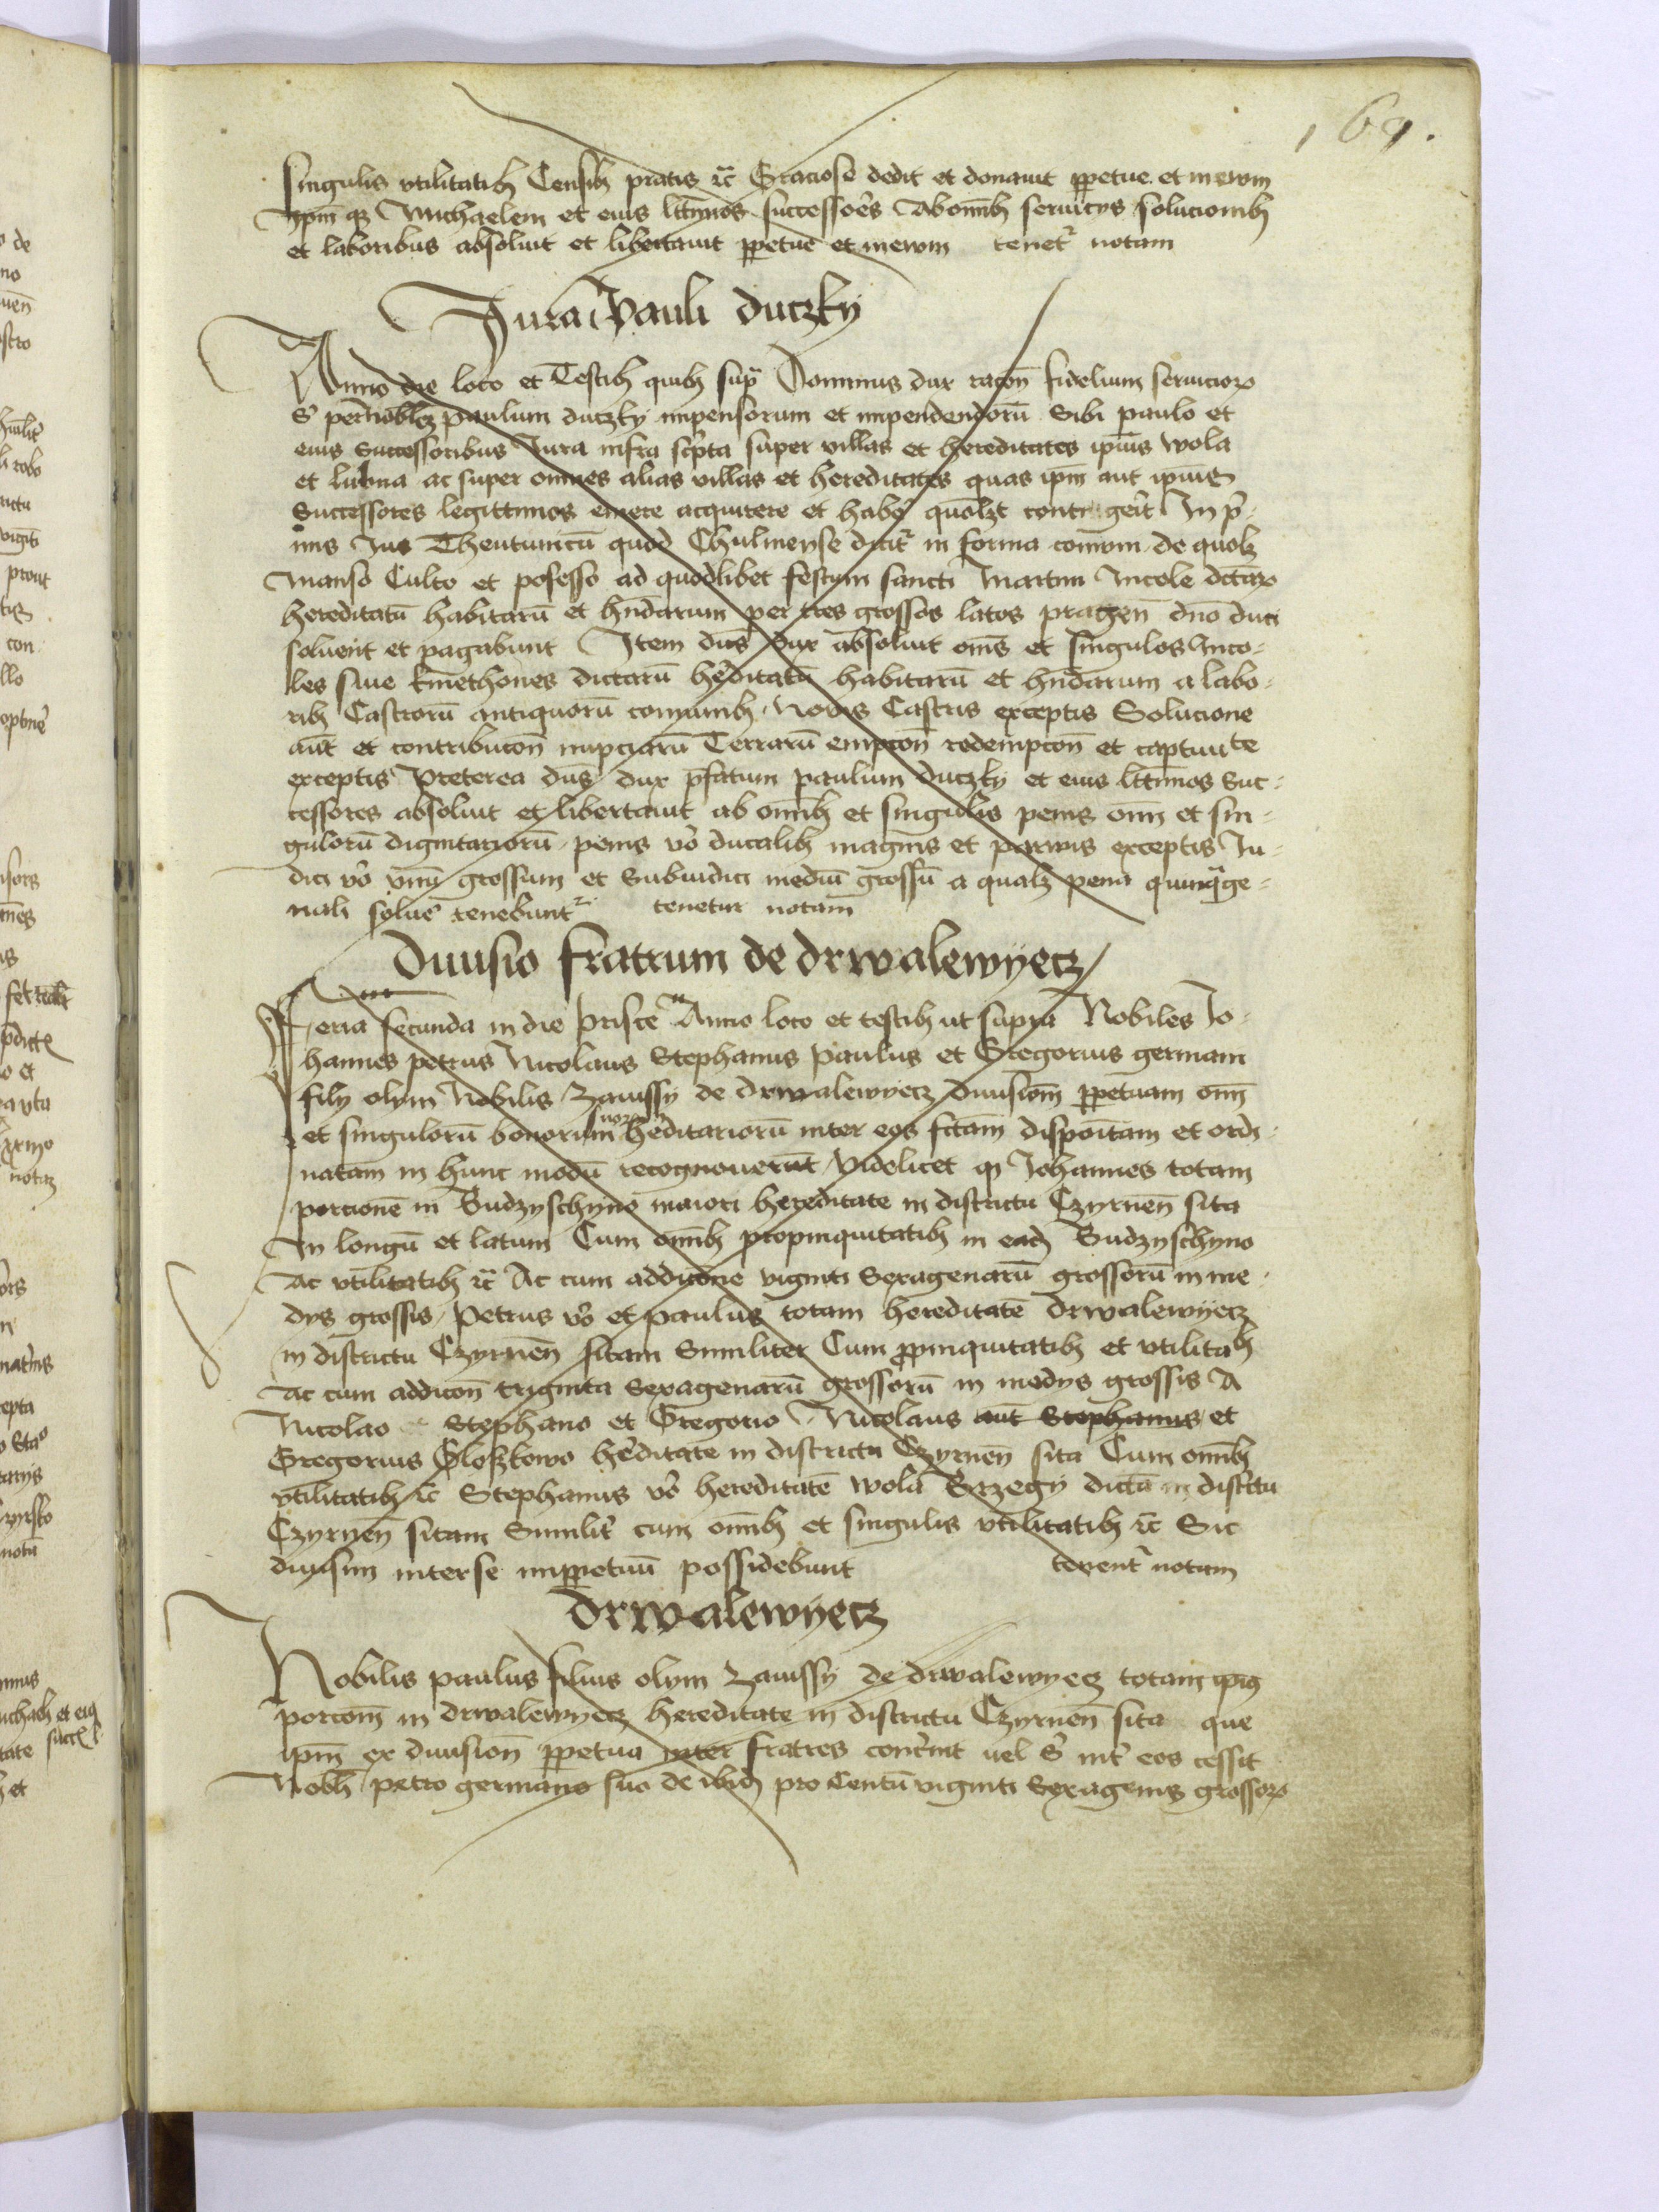 169.
singulis vtilitatibȝ Censibȝ pratis ꝛc̄ Graciose dedit et donauit ꝑpetue et in ewm
Ipm̄ qȝ Michaelem et eius lt̄tymos successoēs Ab om̄ibȝ seruicys solucionibȝ
et laboribus absoluit et libertauit ꝑpetue et in ewm tenet' notam
Jura Pauli duczky
Anno die loco et Testibȝ quibȝ sup̄ Dominus dux racōn fidelium seruicioꝝ
S' per nobilēȝ paulum duczky impensorum et impendendorū Sibi paulo et
eius Successoribus Jura infra scp̄ta super villas et hereditates ipsius wola
et lubna ac super omnes alias villas et hereditates quas ipm̄ aut ipsius
Successores legittimos emere acquirere et habe' quolȝt contigeīt In p̄-
mis Jus Theutunicū quod Chulmense dicit' in forma com̄om de quolȝ
Manso Culto et possesso ad quodlibet festum sancti Martini Incole dictaꝝ
hereditatū habitarū et hn̄darum per tres grossos latos pragen̄ dn̄o duci
soluent et pagabunt Item dūs dux absoluit om̄s et singulos Inco-
les siue kmethones dictarū he'ditatū habitarū et hn̄darum a labo-
ribȝ Castrorū antiquorū comunibȝ Nouis Castris exceptis Solucione
aūt et contribucōn nupciarū Terrarū empcōn redempcōn et captiuite
exceptis Preterea dūs dux p̄fatum paulum duczky et eius lt̄timos Suc-
cessores absoluit et libertauit ab om̄ibȝ et singulis penis om̄ et sin-
gulorū dignitariorū penis v'o ducalibȝ magnis et parwis exceptis Ju-
dici v'o vnū grossum et Subiudici mediū grossū a qualȝ pena quinq̄ge-
nali solue' tenebunt' tenetur notam
Diuisio fratrum de drwalewyecz
Feria secunda in die prisce Anno loco et testibȝ ut supra Nobiles Jo-
hannes petrus Nicolaus Stephanus Paulus et Gregorius germani
fily olym Nobilis Zauissy de drwalewyecz diuisiom̄ ꝑpetuam om̄
et singulorū bonorum suoꝝ he'ditariorū inter eos fc̄tam dispoītam et ordi-
natam in hunc modū recognouerūt Videlicet qȝ Johannes totam
porcionē in Budzyschyno maiori hereditate in districtu Czyrnen̄ sita
In longū et latum Cum om̄ibȝ propinquitatibȝ in eadȝ Budzyschyno
ac vtilitatibȝ ꝛc̄ Ac cum addicōne viginti Sexagenarū grossorū in me-
dys grossis Petrus v'o et paulus totam hereditatē drwalewyecz
in districtu Czyrnen̄ sitam Similiter Cum ꝓpinquitatibȝ et vtilitabȝ
Ac cum addicōn triginta Sexagenarū grossorū in medys grossis A
Nicolao Stephano et Gregorio Nicolaus aūt Stephanus et
Gregorius Gloskowo he'ditate in districtu Czyrnen̄ sita Cum om̄ibȝ
vtilitatibȝ ꝛc̄ Stephanus v'o hereditatē wola Brzegy dictā in distc̄tu
Czyrnen̄ sitam Similit' cum om̄ibȝ et singulis vtilitatibȝ ꝛc̄ Sic
diuisim inter se inꝑpetuū possidebunt tenent' notam
drwalewyecz
Nobilis paulus filius olym Zauissy de drwalewyecz totam ipi9
porcom̄ in drwalewyecz hereditate in districtu Czyrnen̄ sita que
ipm̄ ex diuision̄ ꝑpetua inter fratres conc̄nit uel S' int' eos cessit
Nobili petro germano suo de ibidȝ pro Centū viginti Sexagenis grossoꝝ